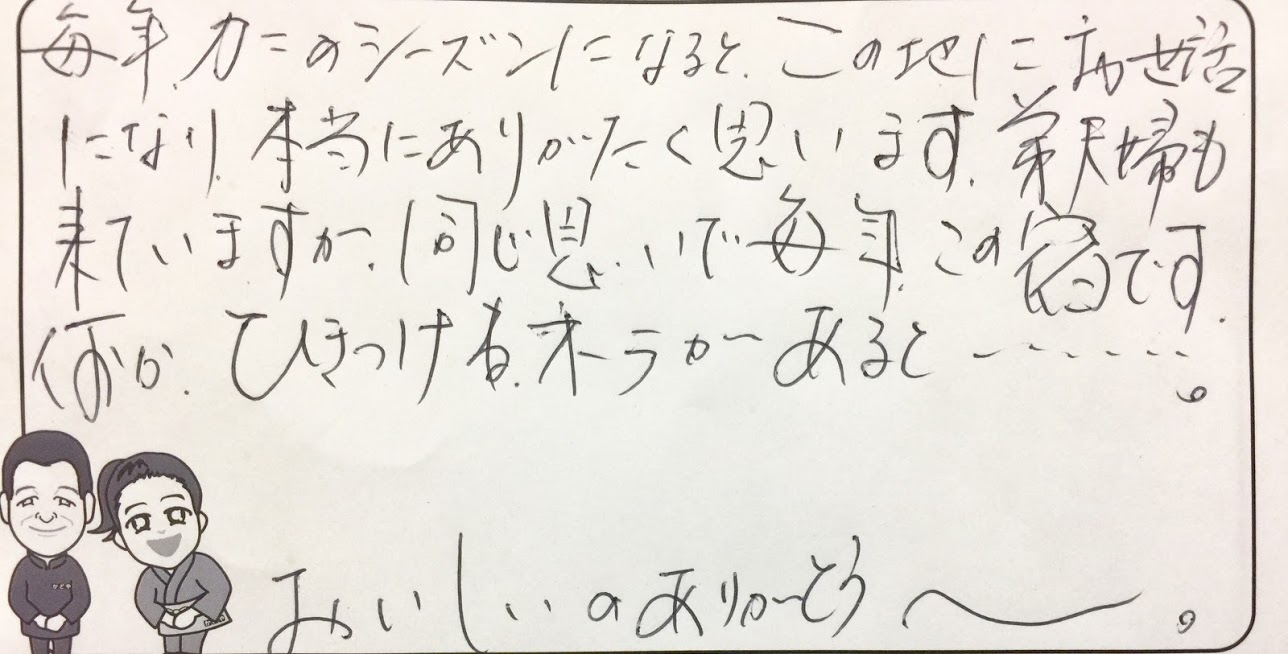 毎年、カニのシーズンになると、この地にお世話
になり、本当にありがたく思います。弟夫婦も
来ていますが、同じ思いで毎年、この宿です。
何か、ひきつけるオーラがあると……。
おいしいのありがとう〜。